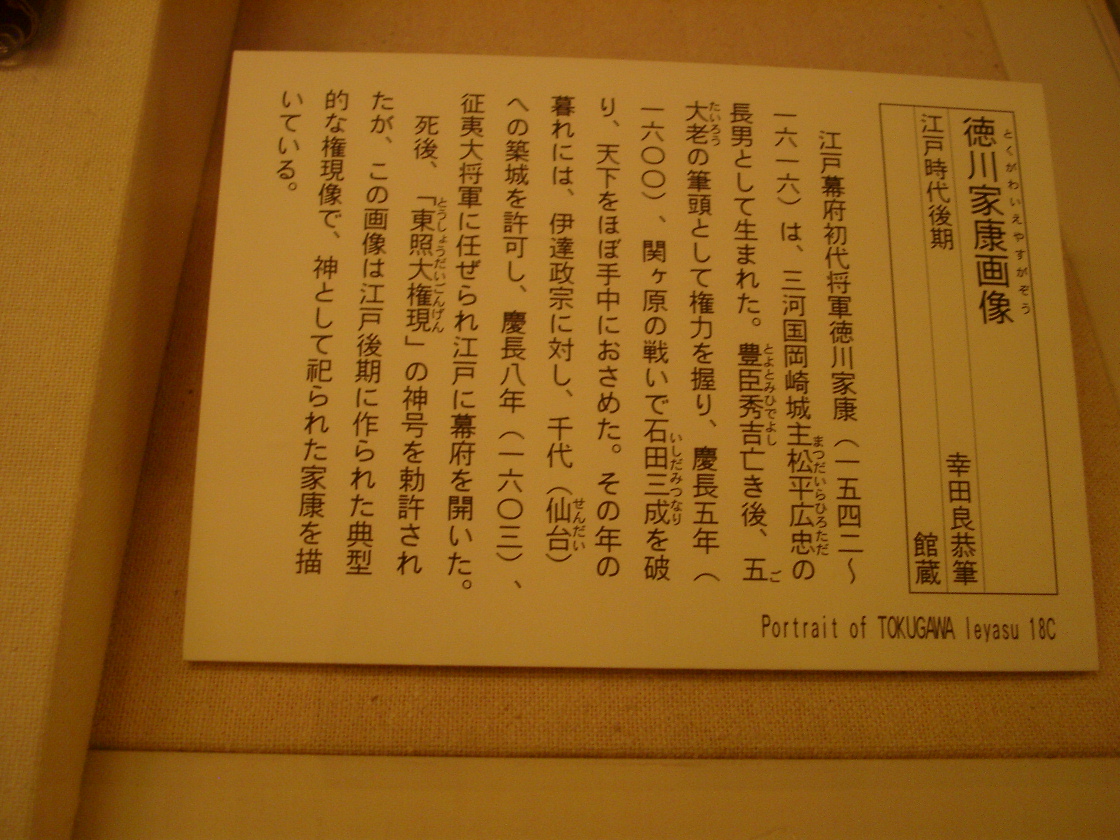 とくがわいえやすがぞう
徳川家康画像
幸田良恭筆
江戸時代後期 館蔵
江戸幕府初代将軍徳川家康（一五四二〜
一六一六）は、三河国岡崎城主松平広忠の
まつだいらひろただ
長男として生まれた。豊臣秀吉亡き後、五
とよとみひでよし ご
大老の筆頭として権力を握り、慶長五年（
たいろう
一六〇〇）、関ヶ原の戦いで石田三成を破
いしだみつなり
り、天下をほぼ手中におさめた。その年の
暮れには、伊達政宗に対し、千代（仙台）
せんだい
への築城を許可し、慶長八年（一六〇三）、
征夷大将軍に任ぜられ江戸に幕府を開いた。
死後、「東照大権現」の神号を勅許され
とうしょうだいごんげん
たが、この画像は江戸後期に作られた典型
的な権現像で、神として祀られた家康を描
いている。
Portrait of TOKUGAWA Ieyasu 18C